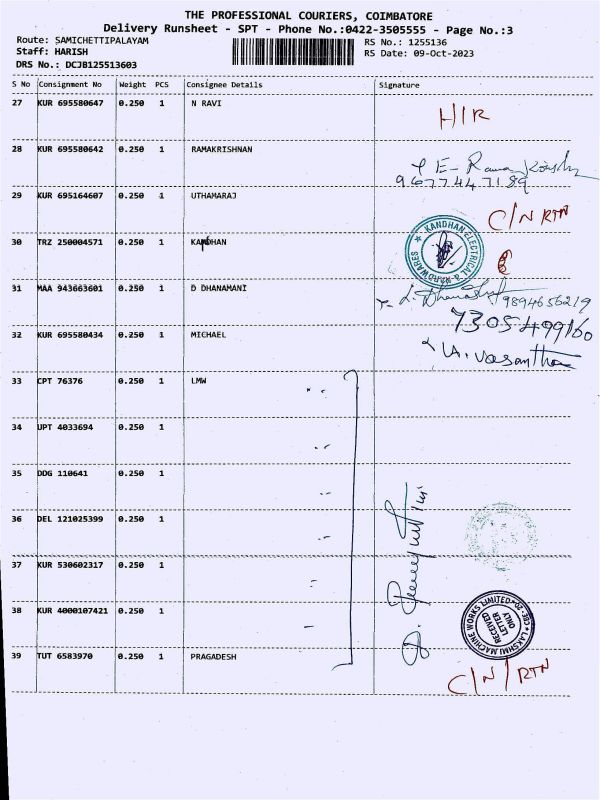 THE PROFESSIONAL COURIERS, COIMBATORE
Delivery Runsheet - SPT - Phone No.:0422-3505555 - Page No.:3
Route: SAMICHETTIPALAYAM
Staff: HARISH
DRS No.: DCJB125513603
RS No.: 1255136
RS Date: 09-Oct-2023
S No Consignment No Weight PCS Consignee Details Signature
27 KUR 695580647 0.250 1 N RAVI H/R
28 KUR 695580642 0.250 1 RAMAKRISHNAN
9677447189
29 KUR 695164607 0.250 1 UTHAMARAJ C/N RTN
30 TRZ 250004571 0.250 1 KANDHAN
KANDHAN ELECTRICAL & HARDWARES
31 MAA 943663601 0.250 1 D DHANAMANI
9894656219
7305499160
32 KUR 695580434 0.250 1 MICHAEL
Vasantha
33 CPT 76376 0.250 1 LMW
34 UPT 4033694 0.250 1
35 DDG 110641 0.250 1
36 DEL 121025399 0.250 1
37 KUR 530602317 0.250 1
38 KUR 4000107421 0.250 1
LAKSHMI MACHINE WORKS LIMITED
RECEIVED
LETTER
ONLY
39 TUT 6583970 0.250 1 PRAGADESH C/N/RTN